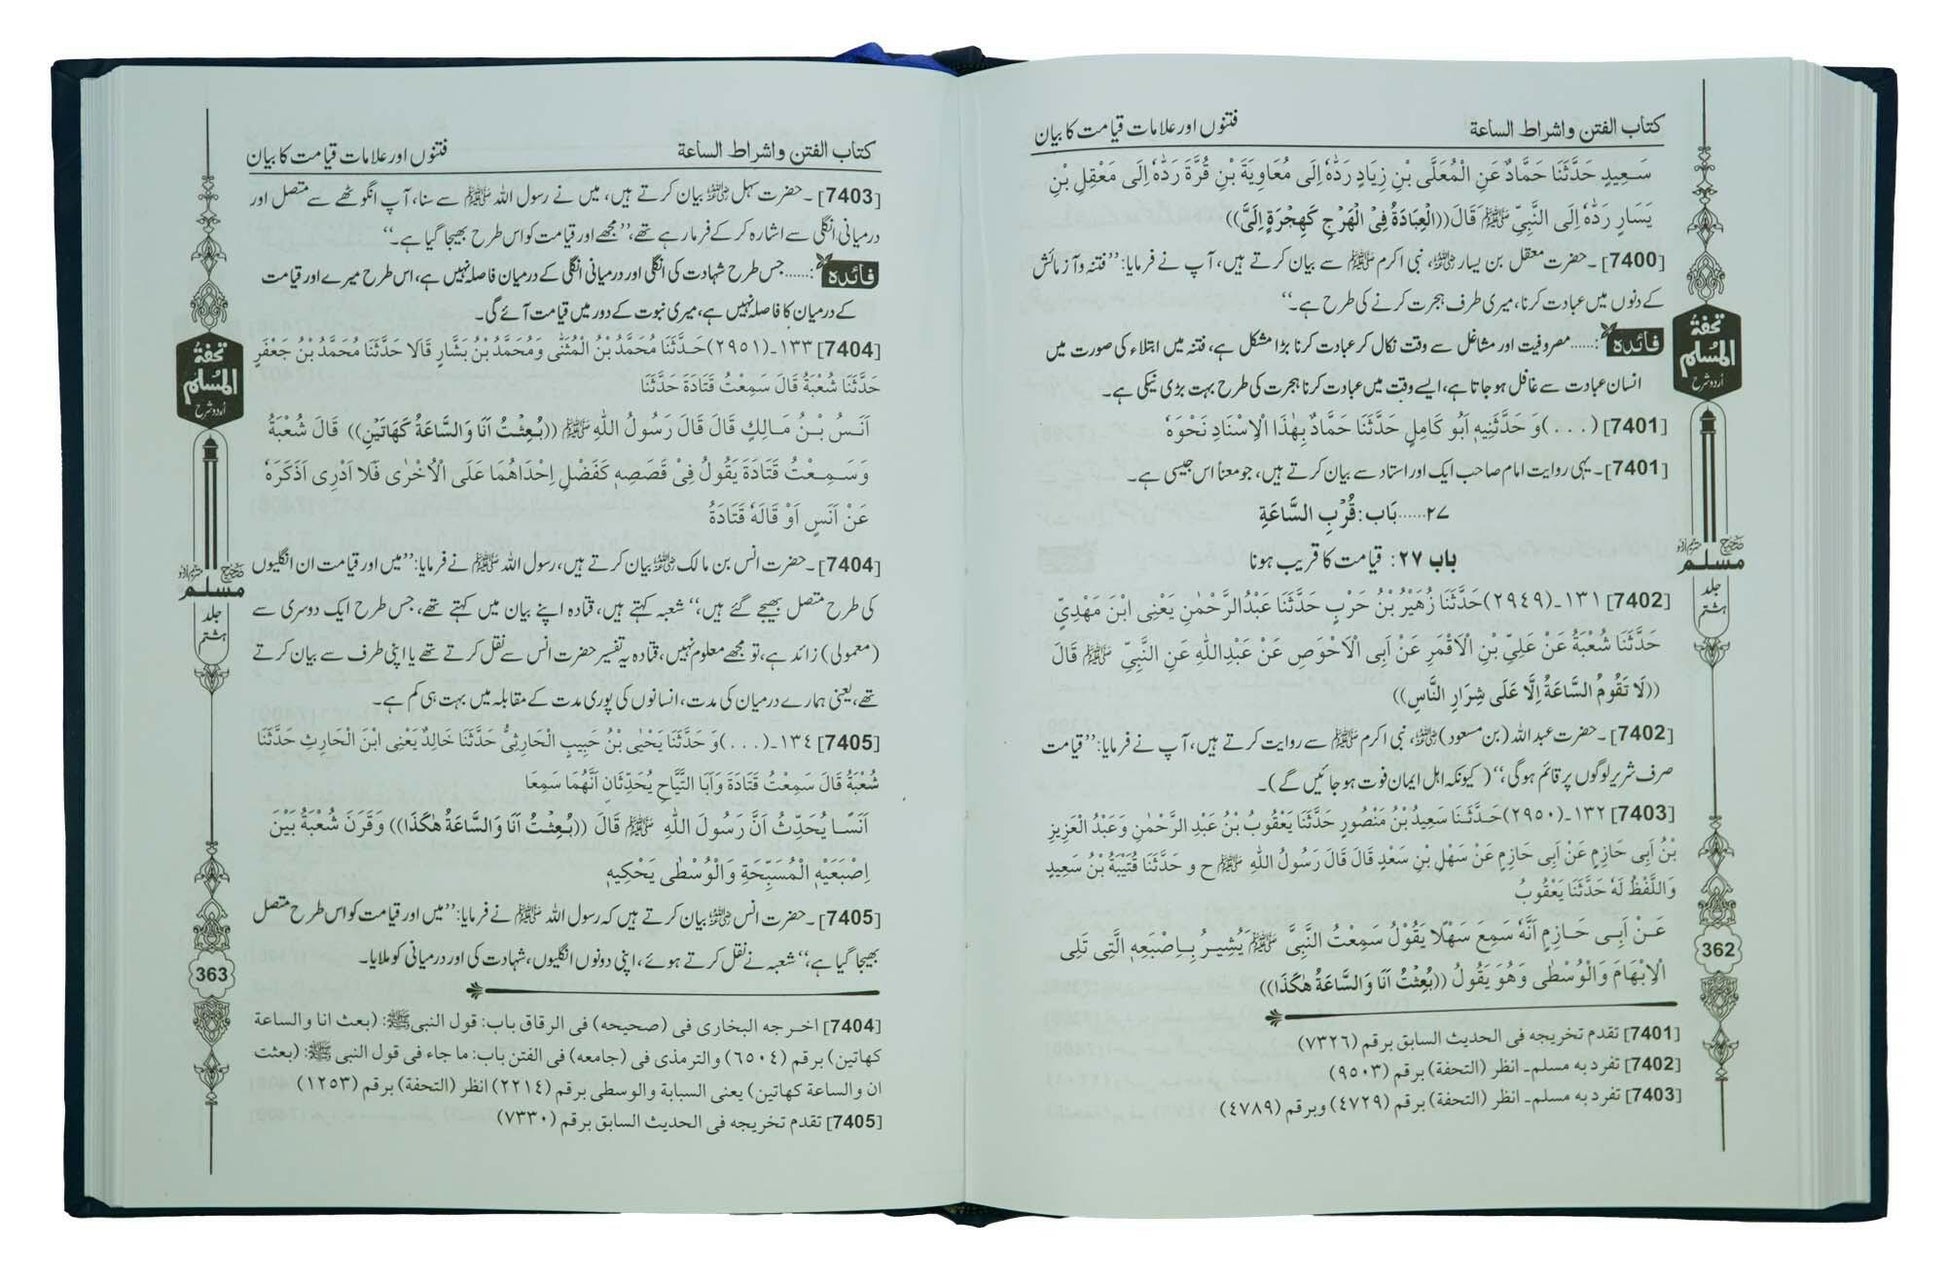 كتاب الفتن واشراط الساعة
فتنوں اور علامات قیامت کا بیان
سَعِيدٍ حَدَّثَنَا حَمَّادٌ عَنِ الْمُعَلَّى بْنِ زِيَادٍ رَدَّهُ إِلَى مُعَاوِيَةَ بْنِ قُرَّةَ رَدَّهُ إِلَى مَعْقِلِ بْنِ
يَسَارٍ رَدَّهُ إِلَى النَّبِيِّ ﷺ قَالَ ((الْعِبَادَةُ فِيْ الْهَرْجِ كَهِجْرَةٍ إِلَيَّ))
[7400]۔ حضرت معقل بن یسار رضی اللہ عنہ، نبی اکرم ﷺ سے بیان کرتے ہیں، آپ نے فرمایا: ’’فتنہ و آزمائش
کے دنوں میں عبادت کرنا، میری طرف ہجرت کرنے کی طرح ہے۔‘‘
فائدہ:......مصروفیت اور مشاغل سے وقت نکال کر عبادت کرنا بڑا مشکل ہے، فتنہ میں ابتلاء کی صورت میں
انسان عبادت سے غافل ہو جاتا ہے، ایسے وقت میں عبادت کرنا ہجرت کی طرح بہت بڑی نیکی ہے۔
[7401] (...) وَ حَدَّثَنِيهِ أَبُو كَامِلٍ حَدَّثَنَا حَمَّادٌ بِهٰذَا الْاِسْنَادِ نَحْوَهُ
[7401]۔ یہی روایت امام صاحب ایک اور استاد سے بیان کرتے ہیں، جو معناً اس جیسی ہے۔
٢٧......بَاب: قُرْبِ السَّاعَةِ
باب ٢٧: قیامت کا قریب ہونا
[7402] ١٣١۔(٢٩٤٩) حَدَّثَنَا زُهَيْرُ بْنُ حَرْبٍ حَدَّثَنَا عَبْدُالرَّحْمٰنِ يَعْنِى ابْنَ مَهْدِيٍّ
حَدَّثَنَا شُعْبَةُ عَنْ عَلِيِّ بْنِ الْاَقْمَرِ عَنْ اَبِى الْاَحْوَصِ عَنْ عَبْدِاللّٰهِ عَنِ النَّبِيِّ ﷺ قَالَ
((لَا تَقُومُ السَّاعَةُ إِلَّا عَلَى شِرَارِ النَّاسِ))
[7402]۔ حضرت عبد اللہ (بن مسعود) رضی اللہ عنہ، نبی اکرم ﷺ سے روایت کرتے ہیں، آپ نے فرمایا: ’’قیامت
صرف شریر لوگوں پر قائم ہو گی،‘‘ (کیونکہ اہل ایمان فوت ہو جائیں گے)۔
[7403] ١٣٢۔(٢٩٥٠) حَدَّثَنَا سَعِيدُ بْنُ مَنْصُورٍ حَدَّثَنَا يَعْقُوبُ بْنُ عَبْدِ الرَّحْمٰنِ وَعَبْدُ الْعَزِيزِ
بْنُ اَبِى حَازِمٍ عَنْ اَبِى حَازِمٍ عَنْ سَهْلِ بْنِ سَعْدٍ قَالَ قَالَ رَسُولُ اللّٰهِ ﷺ ح و حَدَّثَنَا قُتَيْبَةُ بْنُ سَعِيدٍ
وَاللَّفْظُ لَهُ حَدَّثَنَا يَعْقُوبُ
عَنْ اَبِى حَازِمٍ اَنَّهُ سَمِعَ سَهْلًا يَقُوْلُ سَمِعْتُ النَّبِيَّ ﷺ يُشِيرُ بِاِصْبَعِهِ الَّتِى تَلِى
الْاِبْهَامَ وَالْوُسْطٰى وَهُوَ يَقُولُ ((بُعِثْتُ اَنَا وَالسَّاعَةُ هٰكَذَا))
[7401] تقدم تخريجه فى الحديث السابق برقم (٧٣٢٦)
[7402] تفرد به مسلم۔ انظر (التحفة) برقم (٩٥٠٣)
[7403] تفرد به مسلم۔ انظر (التحفة) برقم (٤٧٢٩) وبرقم (٤٧٨٩)
تحفۃ
المسلم
اردو شرح
صحیح
مسلم
جلد
ہشتم
362
كتاب الفتن واشراط الساعة
فتنوں اور علامات قیامت کا بیان
[7403]۔ حضرت سہل رضی اللہ عنہ بیان کرتے ہیں، میں نے رسول اللہ ﷺ سے سنا، آپ انگوٹھے سے متصل اور
درمیانی انگلی سے اشارہ کر کے فرما رہے تھے، ’’مجھے اور قیامت کو اس طرح بھیجا گیا ہے۔‘‘
فائدہ:......جس طرح شہادت کی انگلی اور درمیانی انگلی کے درمیان فاصلہ نہیں ہے، اس طرح میرے اور قیامت
کے درمیان کا فاصلہ نہیں ہے، میری نبوت کے دور میں قیامت آئے گی۔
[7404] ١٣٣۔(٢٩٥١) حَدَّثَنَا مُحَمَّدُ بْنُ الْمُثَنّٰى وَمُحَمَّدُ بْنُ بَشَّارٍ قَالَا حَدَّثَنَا مُحَمَّدُ بْنُ جَعْفَرٍ
حَدَّثَنَا شُعْبَةُ قَالَ سَمِعْتُ قَتَادَةَ حَدَّثَنَا
اَنَسُ بْنُ مَالِكٍ قَالَ قَالَ رَسُولُ اللّٰهِ ﷺ ((بُعِثْتُ اَنَا وَالسَّاعَةَ كَهَاتَيْنِ)) قَالَ شُعْبَةُ
وَسَمِعْتُ قَتَادَةَ يَقُولُ فِىْ قَصَصِهِ كَفَضْلِ اِحْدَاهُمَا عَلَى الْاُخْرٰى فَلَا اَدْرِى اَذَكَرَهُ
عَنْ اَنَسٍ اَوْ قَالَهُ قَتَادَةُ
[7404]۔ حضرت انس بن مالک رضی اللہ عنہ بیان کرتے ہیں، رسول اللہ ﷺ نے فرمایا: ’’میں اور قیامت ان انگلیوں
کی طرح متصل بھیجے گئے ہیں،‘‘ شعبہ کہتے ہیں، قتادہ اپنے بیان میں کہتے تھے، جس طرح ایک دوسری سے
(معمولی) زائد ہے، تو مجھے معلوم نہیں، قتادہ یہ تفسیر حضرت انس سے نقل کرتے تھے یا اپنی طرف سے بیان کرتے
تھے، یعنی ہمارے درمیان کی مدت، انسانوں کی پوری مدت کے مقابلہ میں بہت ہی کم ہے۔
[7405] ١٣٤۔(...) وَ حَدَّثَنَا يَحْيٰى بْنُ حَبِيبٍ الْحَارِثِيُّ حَدَّثَنَا خَالِدٌ يَعْنِى ابْنَ الْحَارِثِ حَدَّثَنَا
شُعْبَةُ قَالَ سَمِعْتُ قَتَادَةَ وَاَبَا التَّيَّاحِ يُحَدِّثَانِ اَنَّهُمَا سَمِعَا
اَنَسًا يُحَدِّثُ اَنَّ رَسُولَ اللّٰهِ ﷺ قَالَ ((بُعِثْتُ اَنَا وَالسَّاعَةُ هٰكَذَا)) وَقَرَنَ شُعْبَةُ بَيْنَ
اِصْبَعَيْهِ الْمُسَبِّحَةِ وَالْوُسْطٰى يَحْكِيهِ
[7405]۔ حضرت انس رضی اللہ عنہ بیان کرتے ہیں کہ رسول اللہ ﷺ نے فرمایا: ’’میں اور قیامت کو اس طرح متصل
بھیجا گیا ہے،‘‘ شعبہ نے نقل کرتے ہوئے، اپنی دونوں انگلیوں، شہادت کی اور درمیانی کو ملایا۔
[7404] اخرجه البخارى فى (صحيحه) فى الرقاق باب: قول النبى ﷺ: (بعث انا والساعة
كهاتين) برقم (٦٥٠٤) والترمذى فى (جامعه) فى الفتن باب: ما جاء فى قول النبى ﷺ: (بعثت
ان والساعة كهاتين) يعنى السبابة والوسطى برقم (٢٢١٤) انظر (التحفة) برقم (١٢٥٣)
[7405] تقدم تخريجه فى الحديث السابق برقم (٧٣٣٠)
تحفۃ
المسلم
اردو شرح
صحیح
مسلم
جلد
ہشتم
363